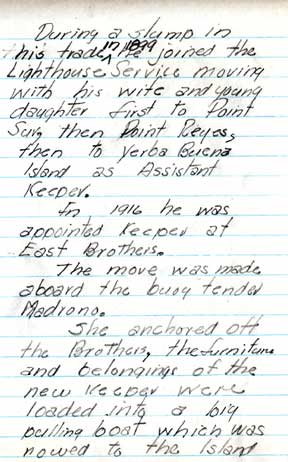 During a slump in
his trade, in 1899 he joined the
Lighthouse Service moving
with his wife and young
daughter first to Point
Sur, then Point Reyes,
then to Yerba Buena
Island as Assistant
Keeper.
In 1916 he was
appointed Keeper at
East Brothers.
The move was made
aboard the buoy tender
Madrono.
She anchored off
the Brothers, the furniture
and belongings of the
new Keeper were
loaded into a big
pulling boat which was
rowed to the Island